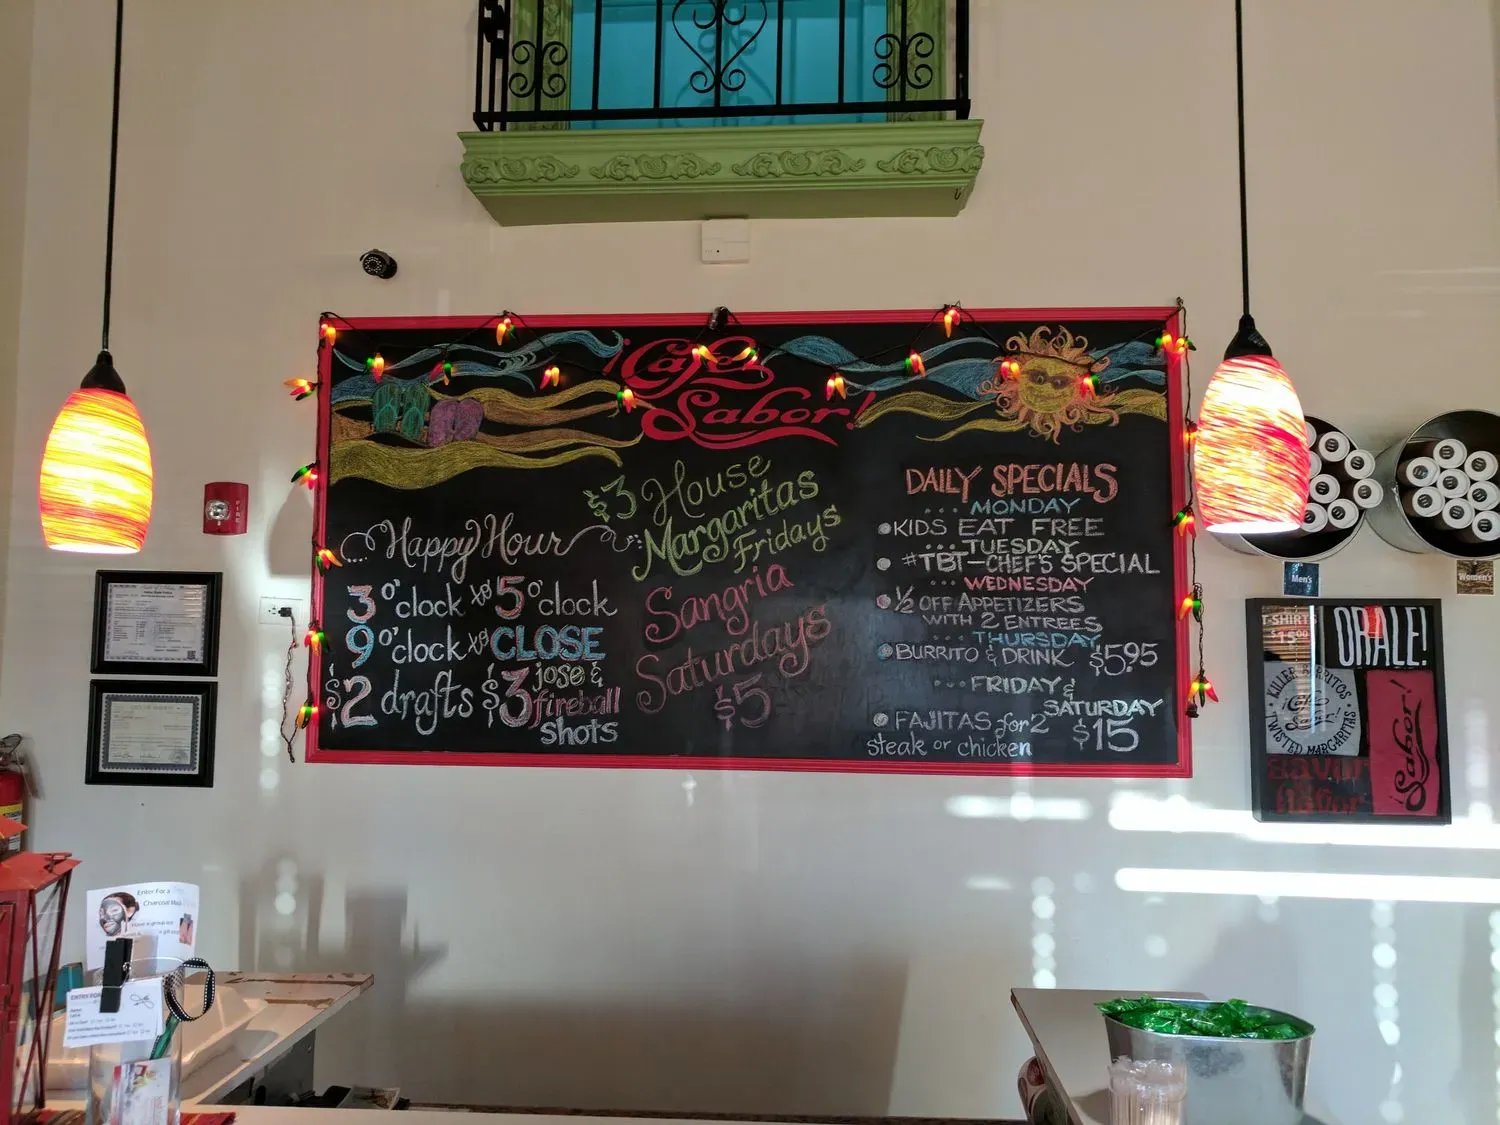 ¡Cafe
Sabor!
Happy Hour
3 o'clock to 5 o'clock
9 o'clock to CLOSE
$2 drafts $3 jose &
fireball
shots
$3 House
Margaritas
Fridays
Sangria
Saturdays
$5
DAILY SPECIALS
... MONDAY
KIDS EAT FREE
... TUESDAY
#TBT-CHEF'S SPECIAL
... WEDNESDAY
½ OFF APPETIZERS
WITH 2 ENTREES
... THURSDAY
BURRITO & DRINK $5.95
... FRIDAY &
SATURDAY
FAJITAS for 2 $15
steak or chicken
FIRE
Men's
Women's
T-SHIRTS
$15.00
ORALE!
KILLER BURRITOS
¡Cafe
Sabor!
TWISTED MARGARITAS
¡Sabor!
Savor
flavor
Enter For a
Charcoal Mask
ENTRY FOR